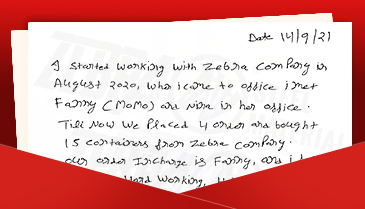 Date 14/9/21
I started working with Zebra Company in
August 2020, when i came to office i met
Fanny (MoMo) and Nina in her office.
Till Now We Placed 4 order and bought
15 containers from Zebra Company.
our order Incharge is Fanny, and i
Hard Working,